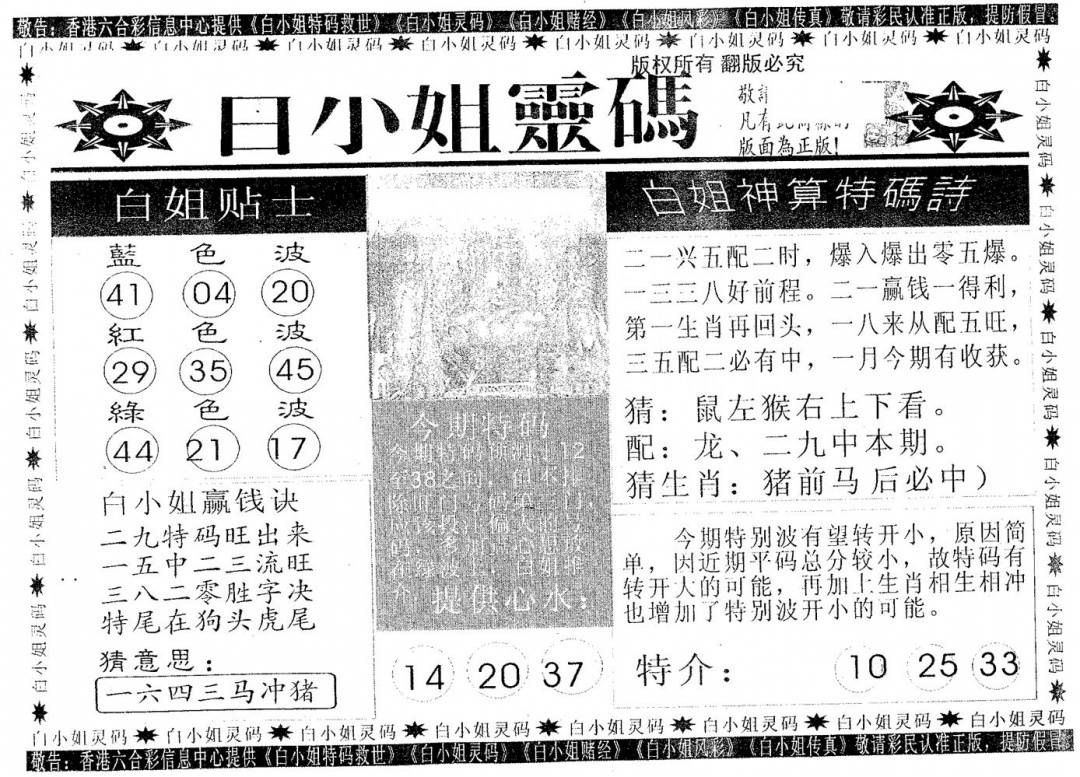 敬告：香港六合彩信息中心提供《白小姐特码救世》《白小姐灵码》《白小姐赌经》《白小姐风彩》《白小姐传真》敬请彩民认准正版，提防假冒。
白小姐灵码 白小姐灵码 白小姐灵码 白小姐灵码 白小姐灵码 白小姐灵码 白小姐灵码 白小姐灵码
版权所有 翻版必究
白小姐靈碼
敬請
凡有
版面為正版！
白姐贴士
藍色波
41 04 20
紅色波
29 35 45
綠色波
44 21 17
白小姐赢钱诀
二九特码旺出来
一五中二三流旺
三八二零胜字决
特尾在狗头虎尾
猜意思：
一六四三马冲猪
今期特码
提供心水：
14 20 37
白姐神算特碼詩
二一兴五配二时，爆入爆出零五爆。
一三三八好前程。二一赢钱一得利，
第一生肖再回头，一八来从配五旺，
三五配二必有中，一月今期有收获。
猜：鼠左猴右上下看。
配：龙、二九中本期。
猜生肖：猪前马后必中）
今期特别波有望转开小，原因简
单，因近期平码总分较小，故特码有
转开大的可能，再加上生肖相生相冲
也增加了特别波开小的可能。
特介：
10 25 33
白小姐灵码 白小姐灵码 白小姐灵码 白小姐灵码 白小姐灵码
白小姐灵码 白小姐灵码 白小姐灵码 白小姐灵码 白小姐灵码
白小姐灵码 白小姐灵码 白小姐灵码 白小姐灵码 白小姐灵码 白小姐灵码 白小姐灵码 白小姐灵码
敬告：香港六合彩信息中心提供《白小姐特码救世》《白小姐灵码》《白小姐赌经》《白小姐风彩》《白小姐传真》敬请彩民认准正版，提防假冒